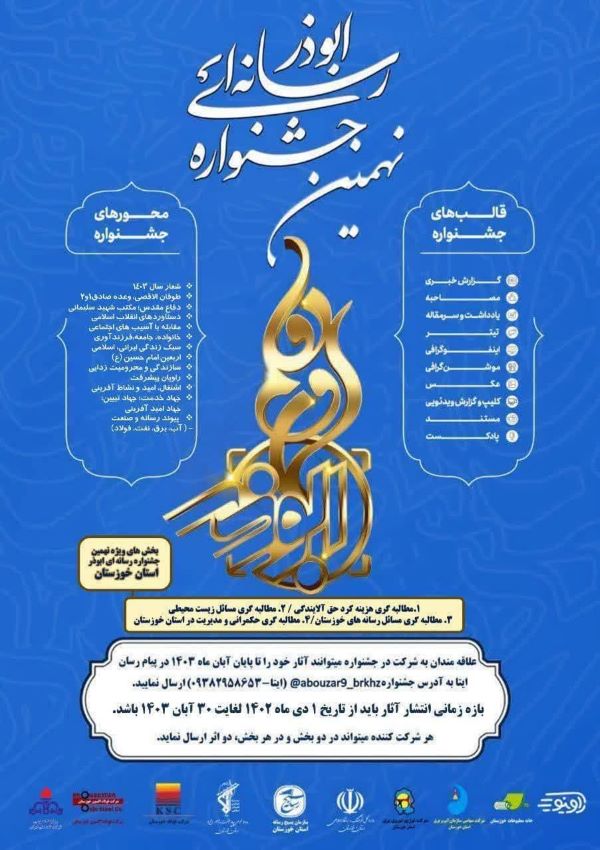 نهمین
جشنواره
رسانه‌ای
ابوذر
قالب‌های
جشنواره
گزارش خبری
مصاحبه
یادداشت و سرمقاله
تیتر
اینفوگرافی
موشن‌گرافی
عکس
کلیپ و گزارش ویدئویی
مستند
پادکست
محورهای
جشنواره
شعار سال ۱۴۰۳
طوفان الاقصی، وعده صادق۱و۲
دفاع مقدس؛ مکتب شهید سلیمانی
دستاوردهای انقلاب اسلامی
مقابله با آسیب های اجتماعی
خانواده، جامعه،فرزندآوری
سبک زندگی ایرانی، اسلامی
اربعین امام حسین (ع)
سازندگی و محرومیت زدایی
راویان پیشرفت
اشتغال، امید و نشاط آفرینی
جهاد خدمت؛ جهاد تبیین؛
جهاد امید آفرینی
پیوند رسانه و صنعت
- ( آب، برق، نفت، فولاد)
بخش های ویژه نهمین
جشنواره رسانه ای ابوذر
استان خوزستان
۱.مطالبه گری هزینه کرد حق آلایندگی / ۲. مطالبه گری مسائل زیست محیطی
۳. مطالبه گری مسائل رسانه های خوزستان/۴. مطالبه گری حکمرانی و مدیریت در استان خوزستان
علاقه مندان به شرکت در جشنواره میتوانند آثار خود را تا پایان آبان ماه ۱۴۰۳ در پیام رسان
ایتا به آدرس جشنواره @abouzar9_brkhz (ایتا-۰۹۳۸۲۹۵۸۶۵۳) ارسال نمایید.
بازه زمانی انتشار آثار باید از تاریخ ۱ دی ماه ۱۴۰۲ لغایت ۳۰ آبان ۱۴۰۳ باشد.
هر شرکت کننده میتواند در دو بخش و در هر بخش، دو اثر ارسال نماید.
خانه مطبوعات خوزستان
سازمان بسیج رسانه
استان خوزستان
KSC
شرکت فولاد خوزستان